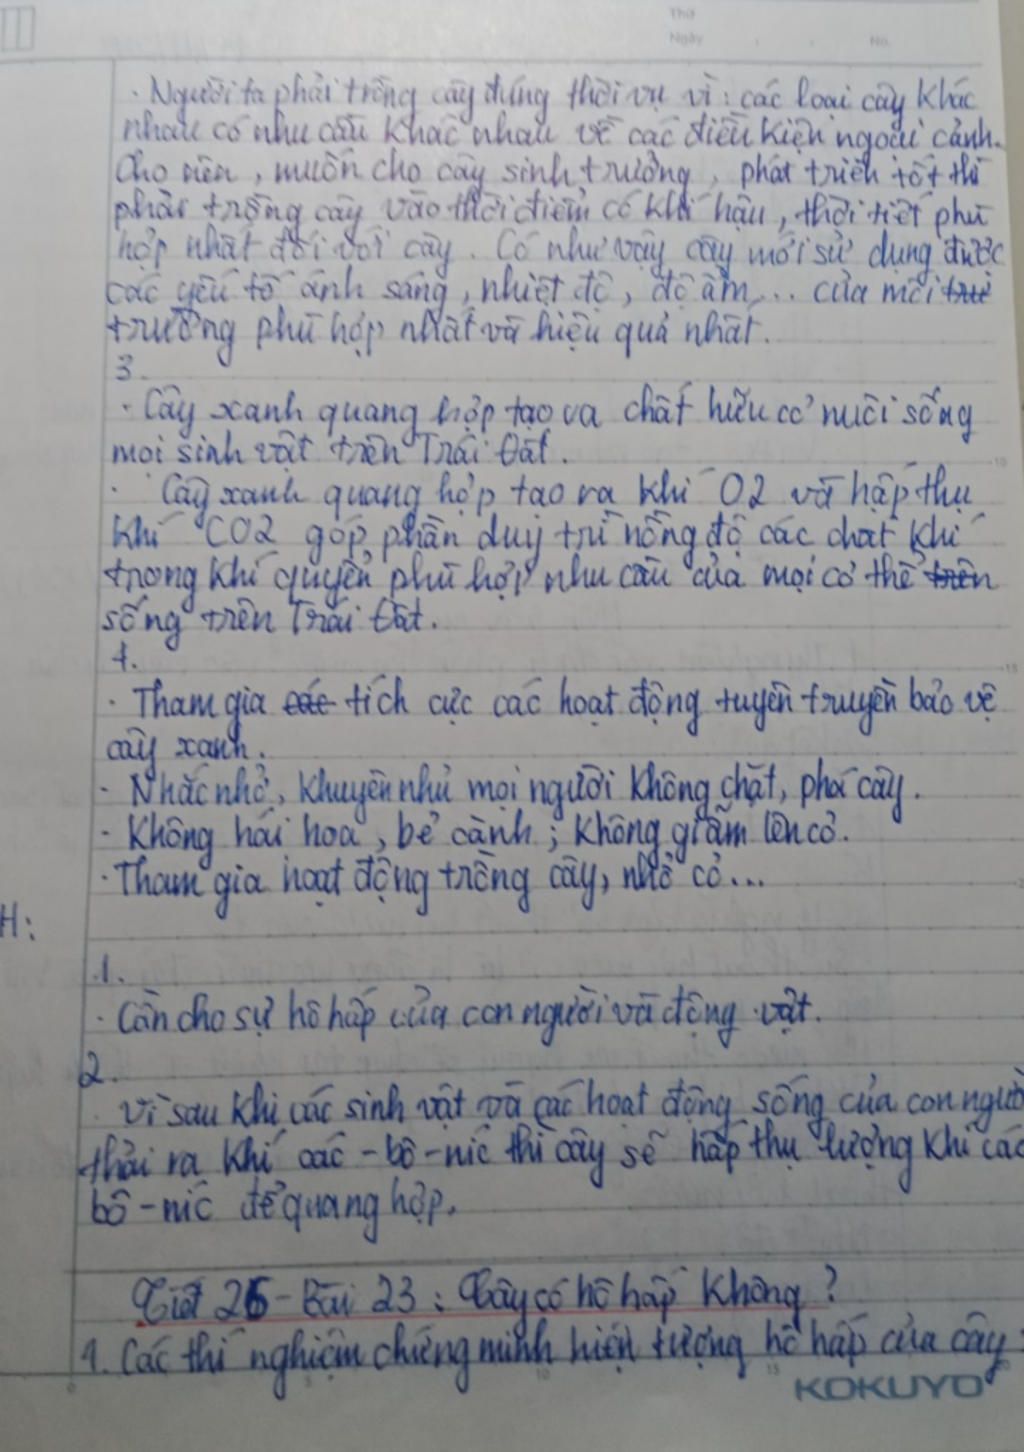 Thứ
Ngày
No.
. Người ta phải trồng cây đúng thời vụ vì: các loại cây khác
nhau có nhu cầu khác nhau về các điều kiện ngoại cảnh.
Cho nên, muốn cho cây sinh trưởng, phát triển tốt thì
phải trồng cây vào thời điểm có khí hậu, thời tiết phù
hợp nhất đối với cây. Có như vậy cây mới sử dụng được
các yếu tố ánh sáng, nhiệt độ, độ ẩm,... của môi trư
trường phù hợp nhất và hiệu quả nhất.
3.
. Cây xanh quang hợp tạo ra chất hữu cơ nuôi sống
mọi sinh vật trên Trái Đất.
. Cây xanh quang hợp tạo ra khí O2 và hấp thụ
khí CO2 góp phần duy trì nồng độ các chất khí
trong khí quyển phù hợp nhu cầu của mọi cơ thể trên
sống trên Trái Đất.
4.
. Tham gia các tích cực các hoạt động tuyên truyền bảo vệ
cây xanh.
- Nhắc nhở, khuyên nhủ mọi người không chặt, phá cây.
- Không hái hoa, bẻ cành; không giẫm lên cỏ.
. Tham gia hoạt động trồng cây, nhổ cỏ...
H:
1.
. Cần cho sự hô hấp của con người và động vật.
2.
. Vì sau khi các sinh vật và các hoạt động sống của con ngườ
thải ra khí các-bô-níc thì cây sẽ hấp thụ lượng khí các
bô-níc để quang hợp.
Tiết 26 - Bài 23: Cây có hô hấp không?
1. Các thí nghiệm chứng minh hiện tượng hô hấp của cây:
KOKUYO